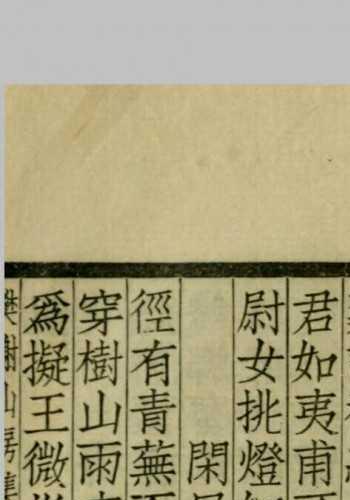 君如夷甫
尉女挑燈
閑
徑有青蕪
穿樹山雨
為擬王微
樊榭山房集